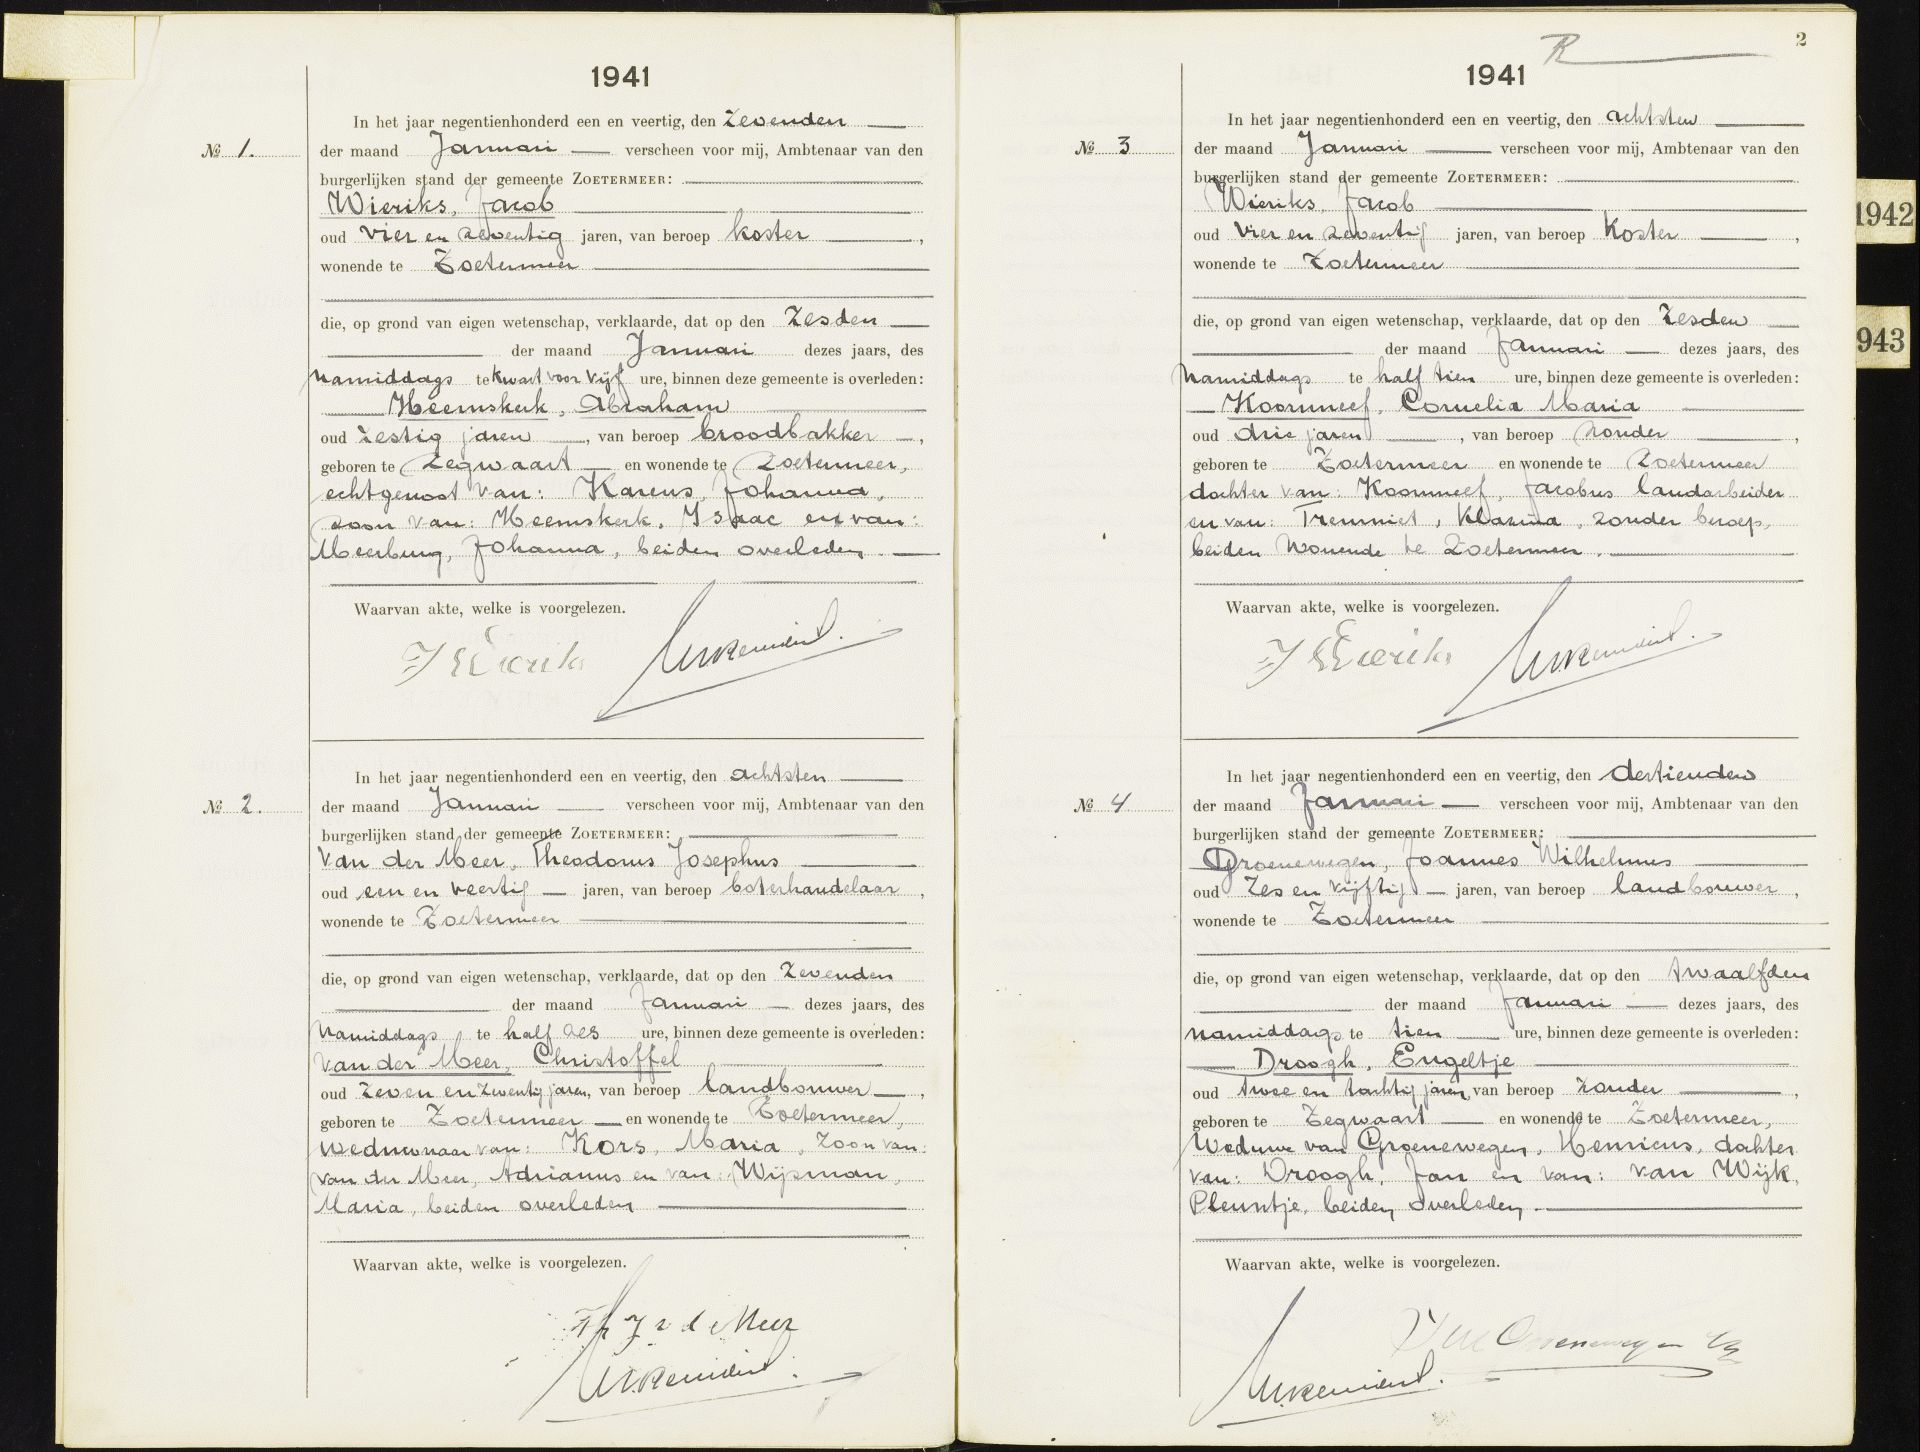 1941
In het jaar negentienhonderd een en veertig, den zevenden
№ 1.
der maand Januari verscheen voor mij, Ambtenaar van den
burgerlijken stand der gemeente ZOETERMEER:
Wieriks, Jacob
oud vier en zeventig jaren, van beroep koster,
wonende te Zoetermeer
die, op grond van eigen wetenschap, verklaarde, dat op den zesden
der maand Januari dezes jaars, des
namiddags te kwart voor vijf ure, binnen deze gemeente is overleden:
Heemskerk, Abraham
oud zestig jaren, van beroep broodbakker,
geboren te Zegwaart en wonende te Zoetermeer,
echtgenoot van: Karens, Johanna,
zoon van: Heemskerk, Isaac en van:
Meerburg, Johanna, beiden overleden.
Waarvan akte, welke is voorgelezen.
J Wieriks
In het jaar negentienhonderd een en veertig, den achtsten
№ 2.
der maand Januari verscheen voor mij, Ambtenaar van den
burgerlijken stand der gemeente ZOETERMEER:
van der Meer, Theodorus Josephus
oud een en veertig jaren, van beroep boterhandelaar,
wonende te Zoetermeer
die, op grond van eigen wetenschap, verklaarde, dat op den zevenden
der maand Januari dezes jaars, des
namiddags te half zes ure, binnen deze gemeente is overleden:
van der Meer, Christoffel
oud zeven en zeventig jaren, van beroep landbouwer,
geboren te Zoetermeer en wonende te Zoetermeer,
weduwnaar van: Kors, Maria, zoon van:
van der Meer, Adrianus en van: Wijsman,
Maria, beiden overleden
Waarvan akte, welke is voorgelezen.
Th J v d Meer
2
R
1941
In het jaar negentienhonderd een en veertig, den achtsten
№ 3
der maand Januari verscheen voor mij, Ambtenaar van den
burgerlijken stand der gemeente ZOETERMEER:
Wieriks, Jacob
oud vier en zeventig jaren, van beroep koster,
wonende te Zoetermeer
die, op grond van eigen wetenschap, verklaarde, dat op den zesden
der maand Januari dezes jaars, des
namiddags te half tien ure, binnen deze gemeente is overleden:
Koornneef, Cornelia Maria
oud drie jaren, van beroep zonder,
geboren te Zoetermeer en wonende te Zoetermeer
dochter van: Koornneef, Jacobus landarbeider
en van: Treurniet, Klazina, zonder beroep,
beiden wonende te Zoetermeer.
Waarvan akte, welke is voorgelezen.
J Wieriks
In het jaar negentienhonderd een en veertig, den dertienden
№ 4
der maand Januari verscheen voor mij, Ambtenaar van den
burgerlijken stand der gemeente ZOETERMEER:
Groenewegen, Joannes Wilhelmus
oud zes en vijftig jaren, van beroep landbouwer,
wonende te Zoetermeer
die, op grond van eigen wetenschap, verklaarde, dat op den twaalfden
der maand Januari dezes jaars, des
namiddags te tien ure, binnen deze gemeente is overleden:
Droogh, Engeltje
oud twee en tachtig jaren, van beroep zonder,
geboren te Zegwaart en wonende te Zoetermeer,
weduwe van Groenewegen, Henricus, dochter
van: Droogh, Jan en van: van Wijk,
Pleuntje, beiden overleden.
Waarvan akte, welke is voorgelezen.
Groenewegen
1942
943